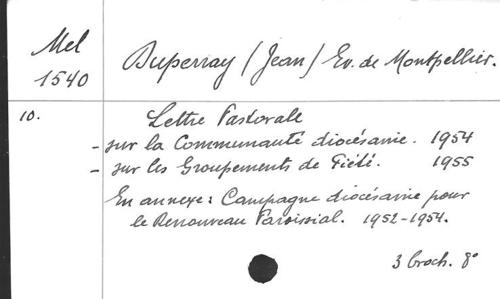 Mel
1540
Duperray (Jean) Ev. de Montpellier.
10.
Lettre Pastorale
- sur la Communauté diocésaine. 1954
- sur les Groupements de Piété. 1955
En annexe : Campagne diocésaine pour
le Renouveau Paroissial. 1952-1954.
3 broch. 8°